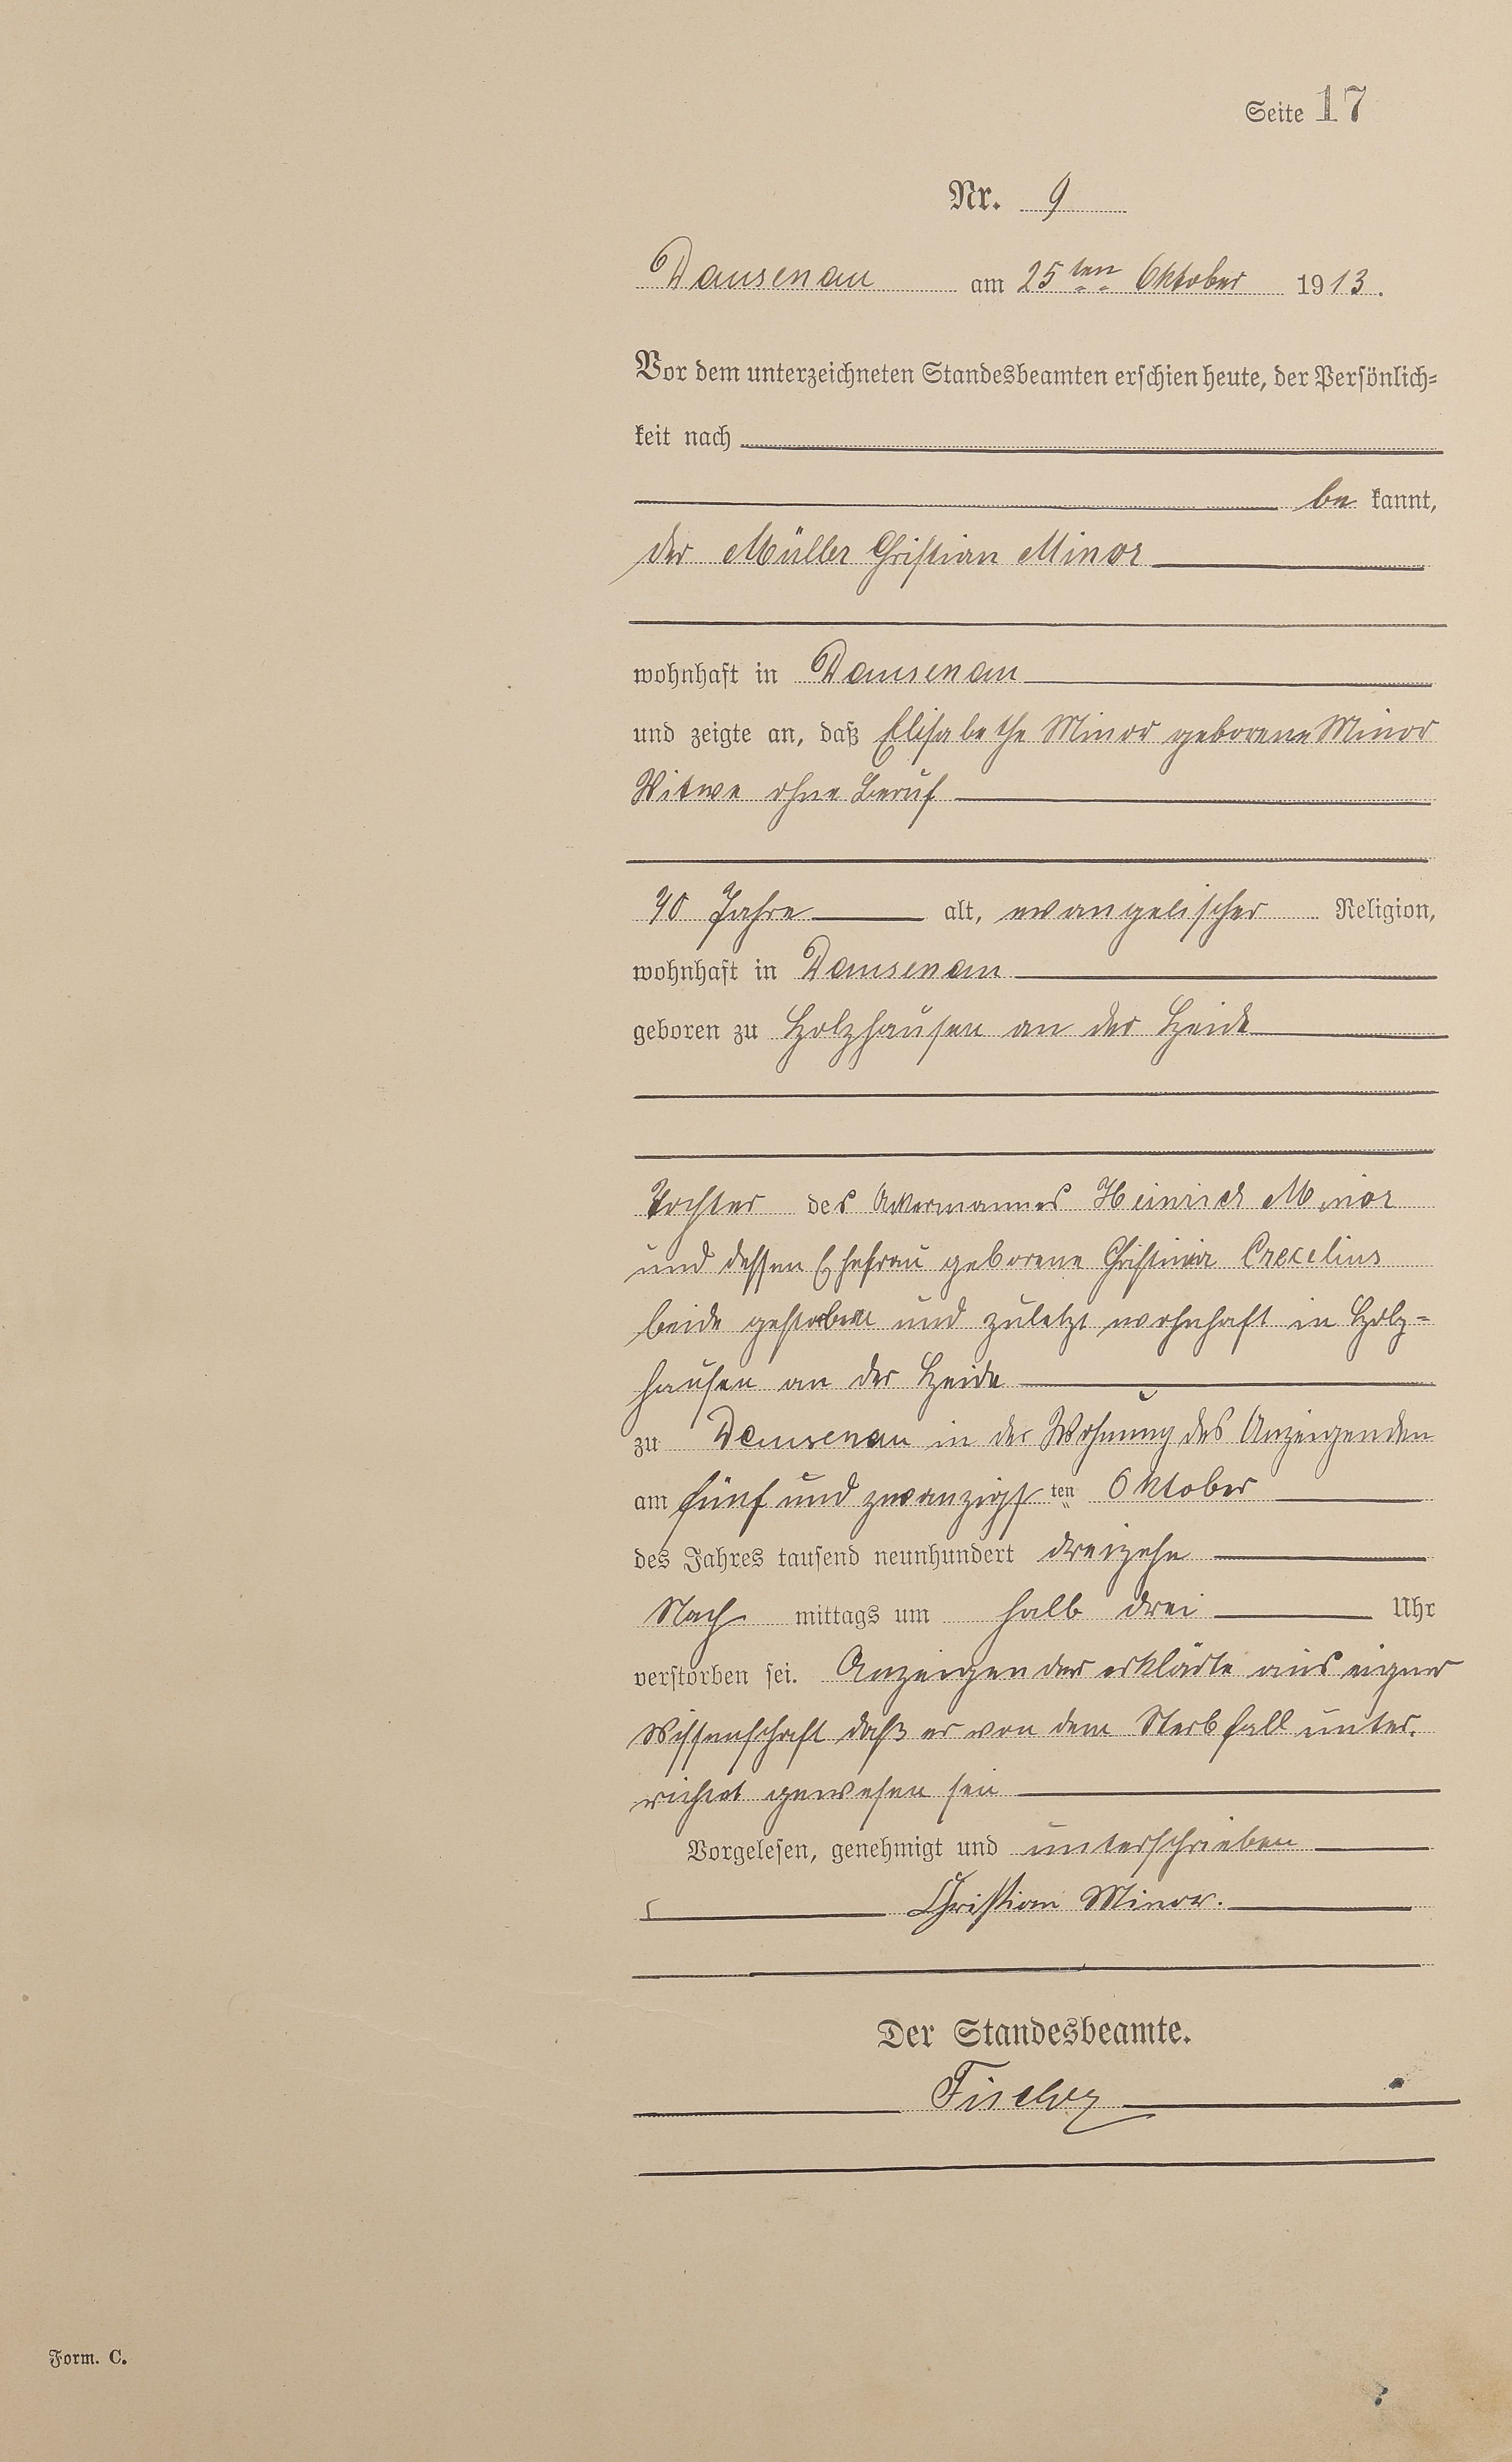 Seite 17
Nr. 9
Dausenau am 25ten Oktober 1913.
Vor dem unterzeichneten Standesbeamten erschien heute, der Persönlich-
keit nach
be kannt,
der Müller Christian Minor
wohnhaft in Dausenau
und zeigte an, daß Elisabethe Minor geborene Minor
Witwe ohne Beruf
70 Jahre alt, evangelischer Religion,
wohnhaft in Dausenau
geboren zu Holzhausen an der Heide
Tochter des Ackermannes Heinrich Minor
und dessen Ehefrau geborene Christina Crecelius
beide gestorben und zuletzt wohnhaft in Holz-
hausen an der Heide
zu Dausenau in der Wohnung des Anzeigenden
am fünf und zwanzigsten Oktober
des Jahres tausend neunhundert dreizehn
Nach mittags um halb drei Uhr
verstorben sei. Anzeigender erklärte aus eigner
Wissenschaft daß er von dem Sterbfall unter-
richtet gewesen sei
Vorgelesen, genehmigt und unterschrieben
Christian Minor.
Der Standesbeamte.
Fischer
Form. C.